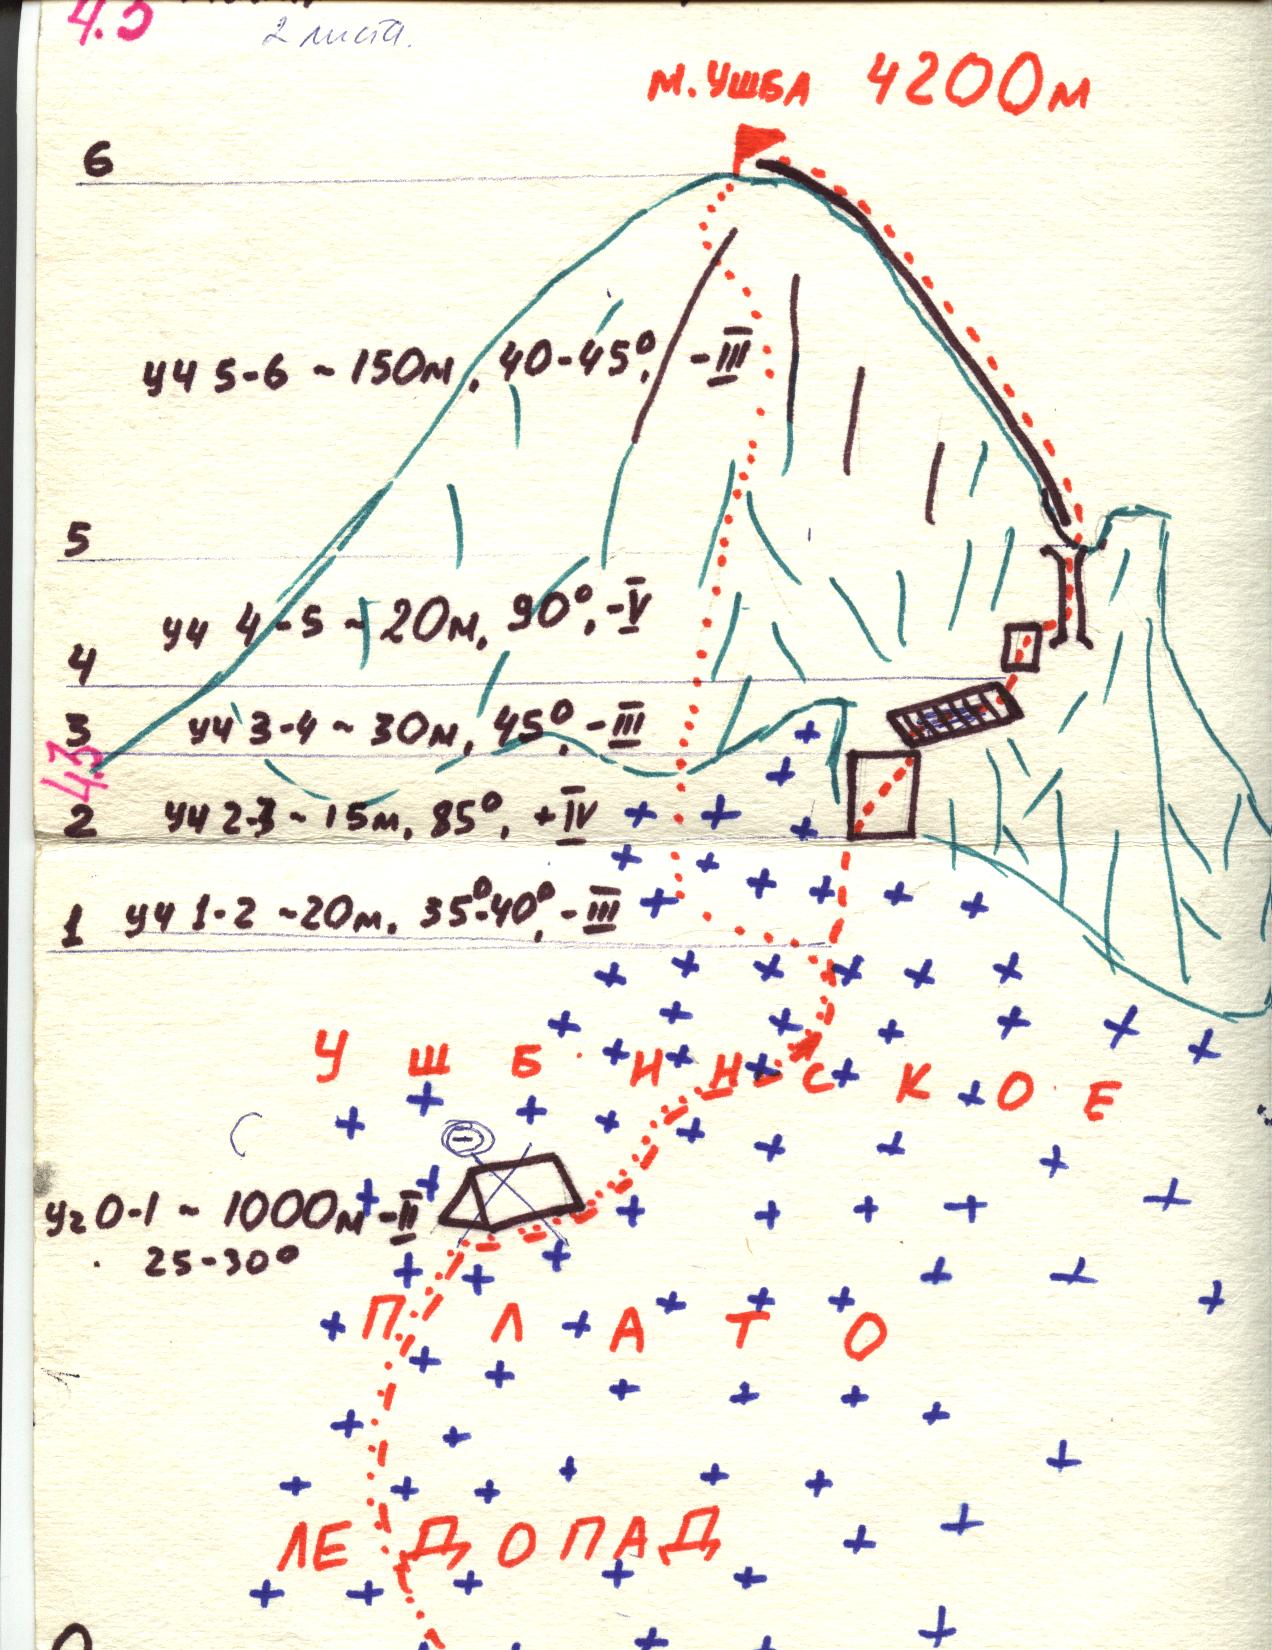 4.3
2 листа.
М. УШБА 4200м
6
уч 5-6 ~ 150м, 40-45°, -III
5
уч 4-5 ~ 20м, 90°, -V
4
3 уч 3-4 ~ 30м, 45°, -III
4.3
2 уч 2-3 ~ 15м, 85°, +IV
1 уч 1-2 ~20м, 35°-40°, -III
УШБИНСКОЕ
уч 0-1 ~ 1000м -II
25-30°
ПЛАТО
ЛЕДОПАД
0